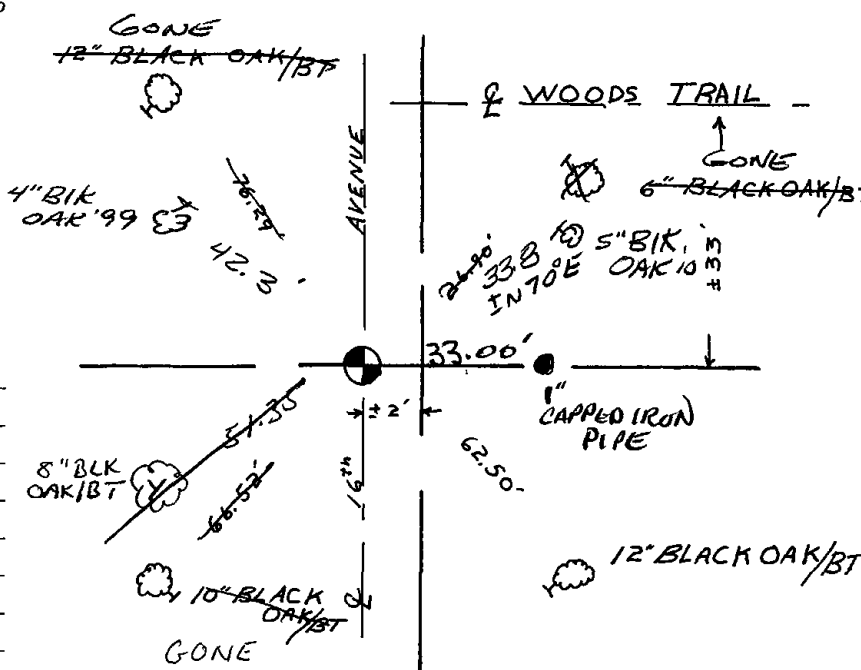 GONE
12" BLACK OAK/BT
℄ WOODS TRAIL
AVENUE
GONE
6" BLACK OAK/BT
4" BlK
OAK '99
76.29'
42.3'
26.90'
33.8
N70°E
5" BlK.
OAK 10
±33'
33.00'
±2'
1"
CAPPED IRON
PIPE
51.35'
8" BLK
OAK/BT
66.52'
16th
62.50'
12" BLACK OAK/BT
10" BLACK
OAK/BT
℄
GONE